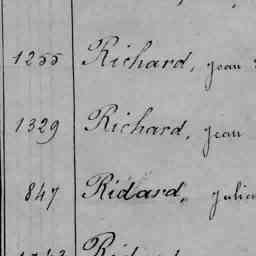 1255 Richard, jean
1329 Richard, jean
847 Ridard, julia